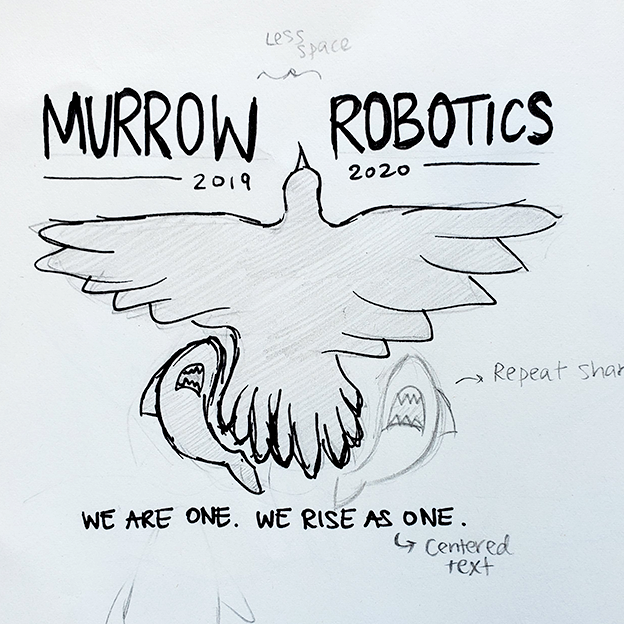 Less
space
MURROW ROBOTICS
2019 2020
Repeat shar
WE ARE ONE. WE RISE AS ONE.
Centered
text